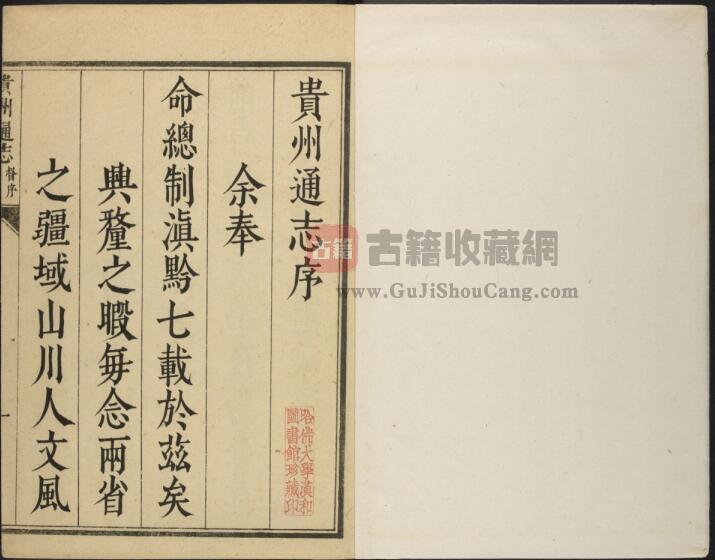 貴州通志序
余奉
命總制滇黔七載於茲矣
興釐之暇每念兩省
之疆域山川人文風
貴州通志 督序
一
哈佛大學漢和
圖書館珍藏印
古籍
古籍收藏網
www.GuJiShouCang.com